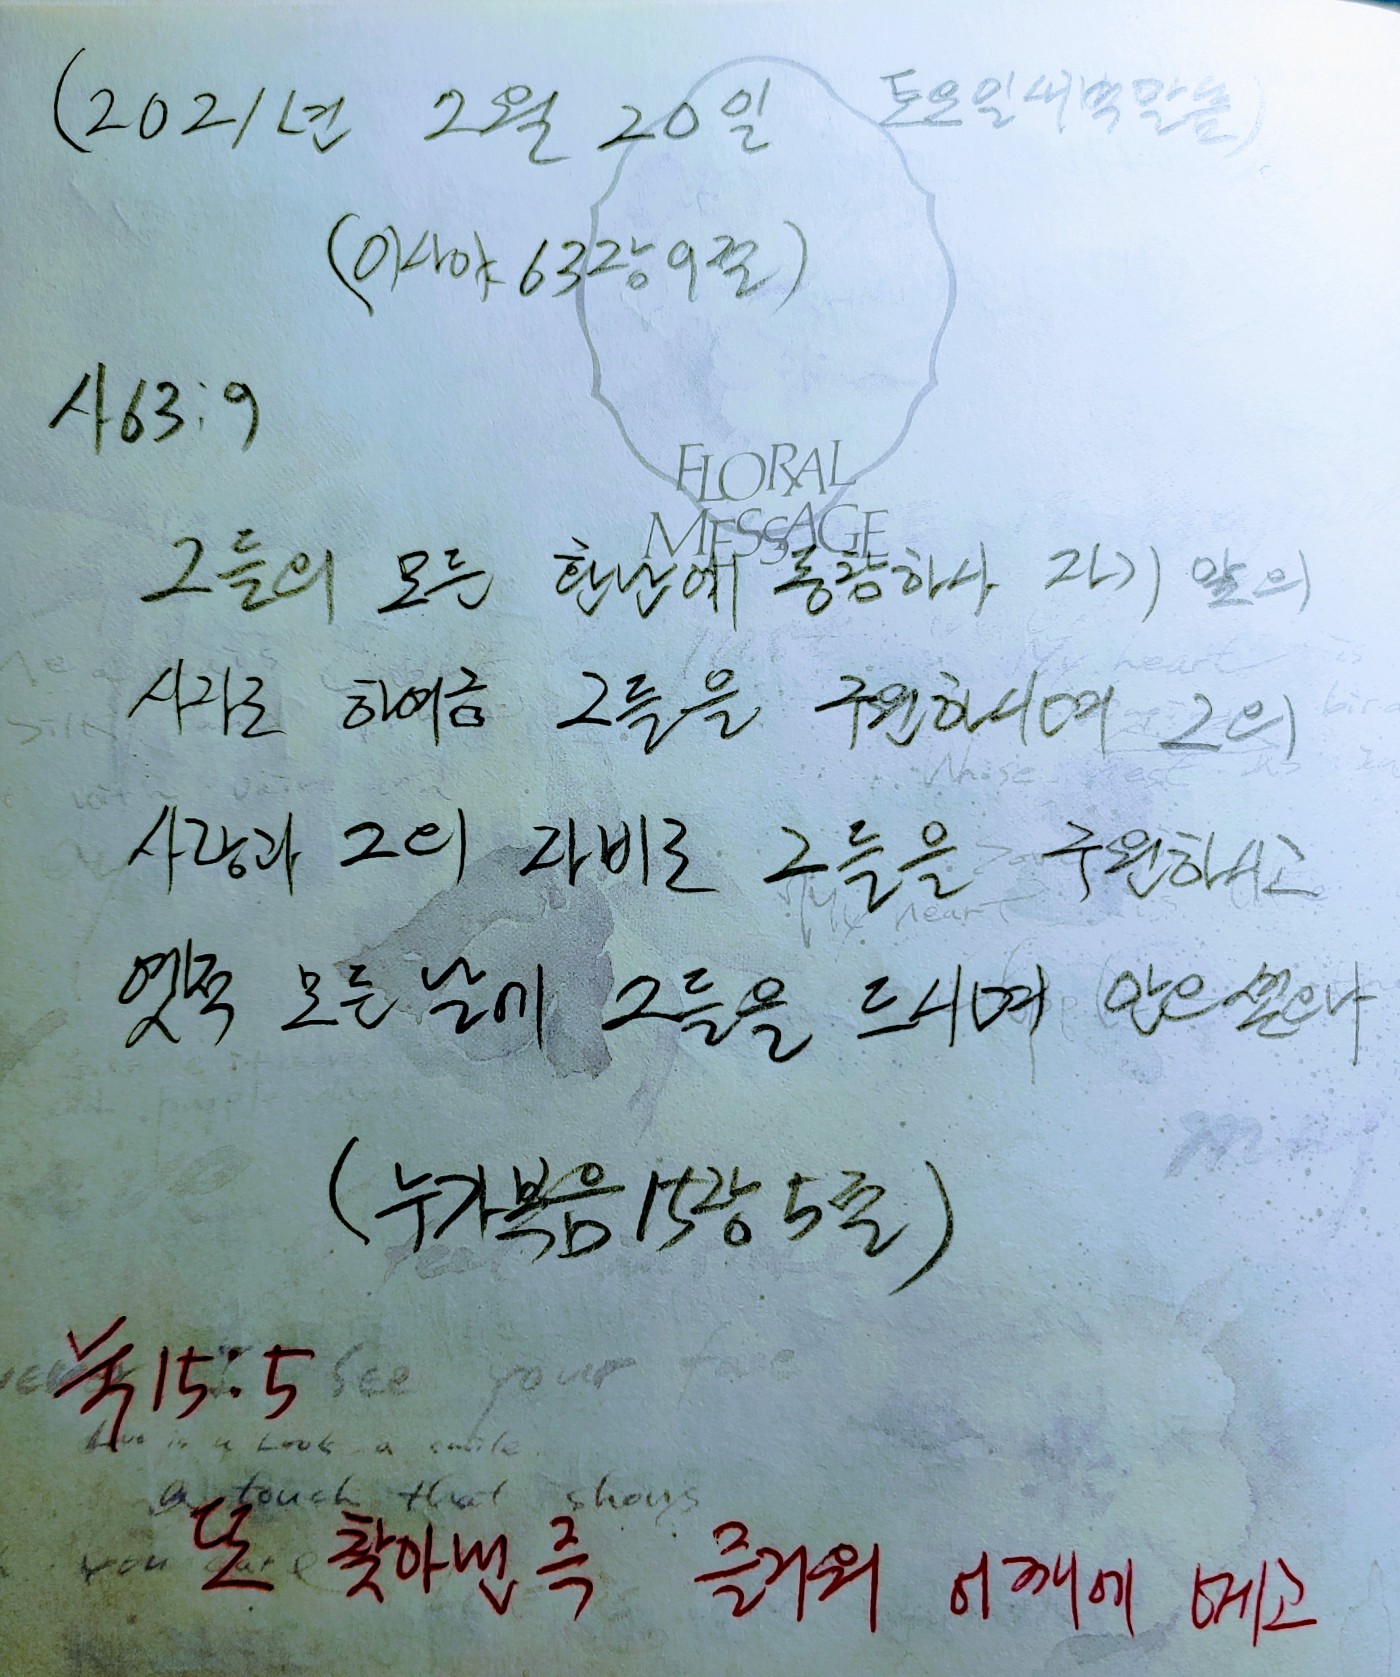 (2021년 2월 20일 토요일새벽말씀)
(이사야 63장 9절)
FLORAL
MESSAGE
사63:9
그들의 모든 환난에 동참하사 자기 앞의
사자로 하여금 그들을 구원하시며 그의
사랑과 그의 자비로 그들을 구원하시고
옛적 모든 날에 그들을 드시며 안으셨으나
(누가복음15장5절)
눅15:5
see your face
Love is a look a smile
a touch that shows
you care
또 찾아낸즉 즐거워 어깨에 메고